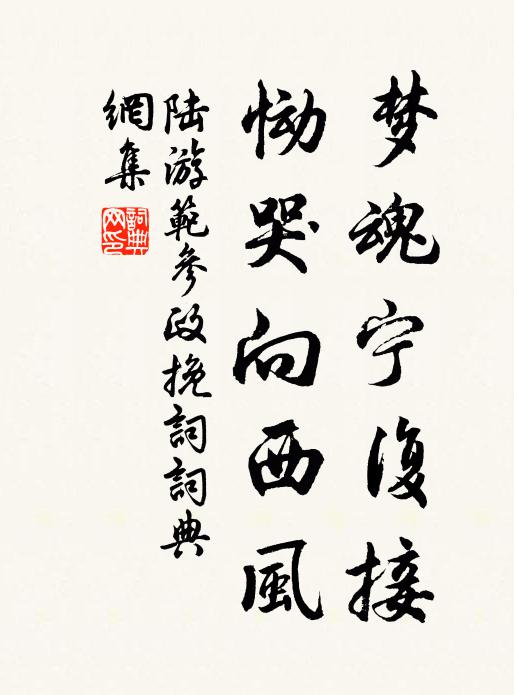 梦魂宁復接
恸哭向西風
陆游範参政挽詞詞典
網集
詞典網印